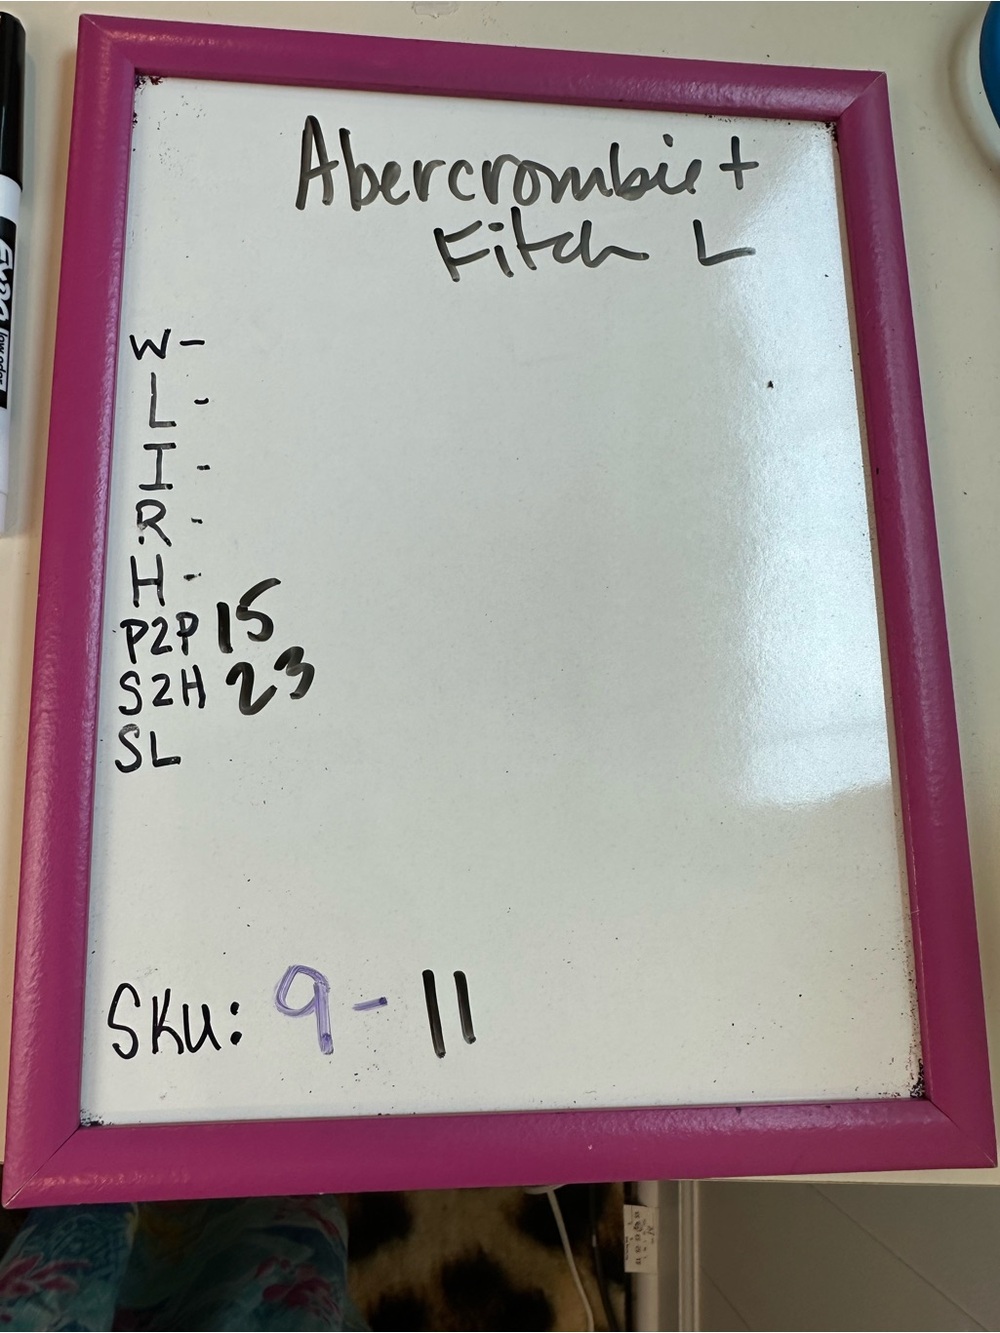 Abercrombie +
Fitch L
W-
L-
I-
R-
H-
P2P 15
S2H 23
SL
SKU: 9-11
EXPO low odor